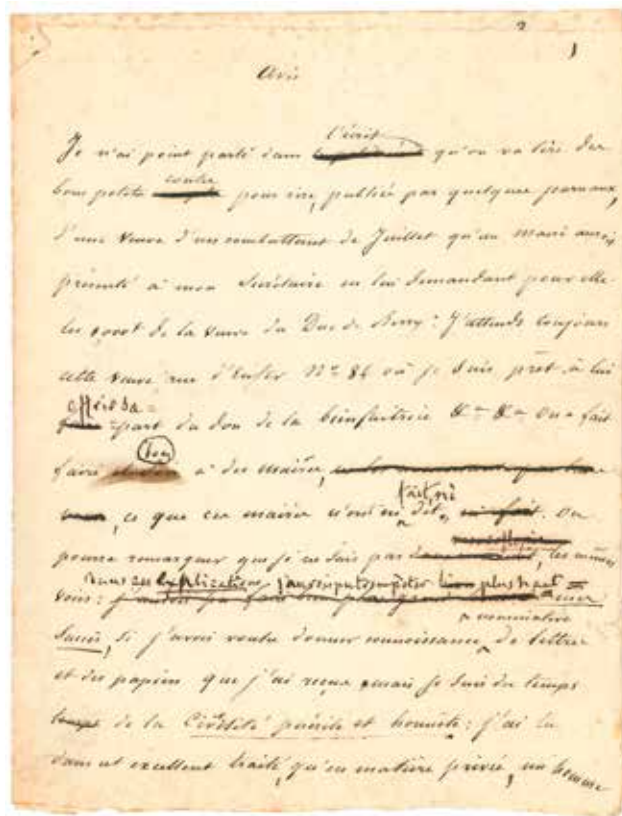 2
1
Avis
l'écrit
Je n'ai point parlé dans qu'on va lire des
contes
bons petits pour rire, publiés par quelques journaux,
d'une veuve d'un combattant de Juillet qu'un maire auroit
présenté à mon Secrétaire en lui demandant pour elle
les de la veuve du Duc de Berry: J'attends toujours
cette veuve rue d'Enfer No 84 où je suis prêt à lui
offrir sa
part du don de la bienfaitrice &a &a On a fait
bon
faire à des maires,
fait, ni
ce que ces maires n'ont ni dit, ni fait. On
pourra remarquer que je ne suis pas les mêmes
dans ces explications, j'aurois pu
vois: aucun
nominative
succès, si j'avois voulu donner connoissance de lettres
et des papiers que j'ai reçus mais je suis du temps
temps de la Civilité puérile et honnête: j'ai lu
dans cet excellent traité, qu'en matière privée, un homme